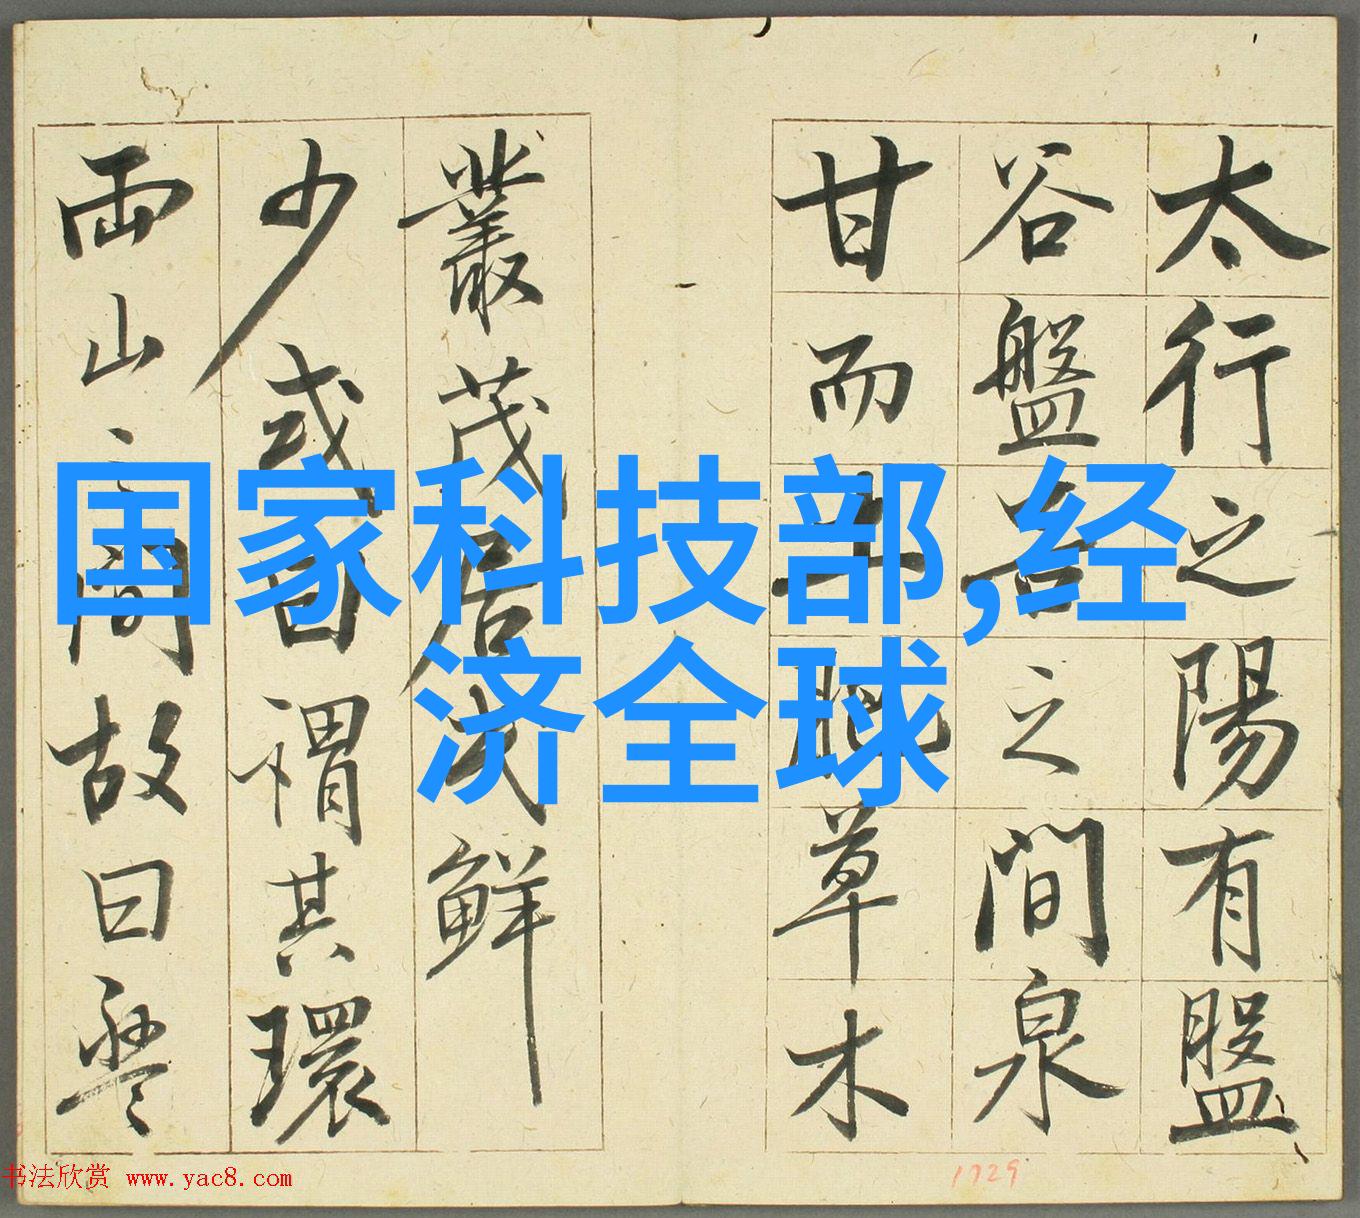 国家科技部,经
济全球
太行之陽有盤
谷盤谷之間泉
甘而土肥草木
叢茂居民鮮
少或曰謂其環
兩山之間故曰盤
书法欣赏 www.yac8.com
1729